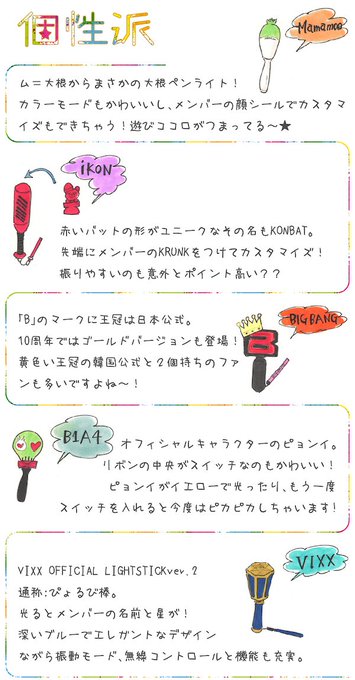 個性派
Mamamoo
ム=大根からまさかの大根ペンライト！
カラーモードもかわいいし、メンバーの顔シールでカスタマ
イズもできちゃう！遊びココロがつまってる～★
iKON
赤いバットの形がユニークなその名もKONBAT。
先端にメンバーのKRUNKをつけてカスタマイズ！
振りやすいのも意外とポイント高い？？
「B」のマークに王冠は日本公式。
10周年ではゴールドバージョンも登場！
黄色い王冠の韓国公式と2個持ちのファ
ンも多いですよね～！
BIGBANG
B
B1A4
オフィシャルキャラクターのピョンイ。
リボンの中央がスイッチなのもかわいい！
ピョンイがイエローで光ったり、もう一度
スイッチを入れると今度はピカピカしちゃいます！
VIXX
VIXX OFFICIAL LIGHTSTICKver.2
通称:ぴょるび棒。
光るとメンバーの名前と星が！
深いブルーでエレガントなデザイン
ながら振動モード、無線コントロールと機能も充実。